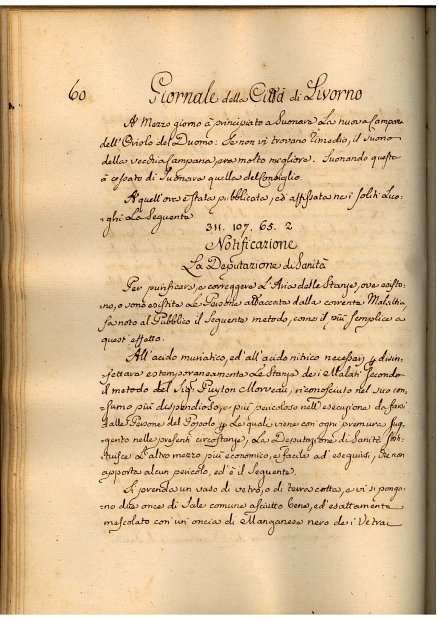 60 Giornale della Città di Livorno
A' Mezzo giorno à principiato a Suonare La nuova Campana
dell'Oriolo del Duomo: Se non vi trovano rimedio, il suono
della vecchia Campana era molto migliore. Suonando questa
à cessato di Suonare quella del Consiglio
A' quell'ora è stata pubblicata, ed' affissata nei soliti Luo-
ghi La Seguente
311. 107. 65. 2
Notificazione
La Deputazione di Sanità
Per purificare, e correggere L'Aria delle Stanze, ove esisto-
no, o sono esistite Le Persone attaccate dalla corrente Malattia,
fa noto al Pubblico il Seguente metodo, come il più Semplice a
quest'effetto.
All'acido muriatico, ed' all'acido nitrico necessari p disin-
fettare estemporaneamente Le Stanze dei Malati Secondo
il metodo del Sig. Guyton Morveau, riconosciuto nel suo con-
sumo più dispendioso, e più pericoloso nell'esecuzione da farsi
dalle Persone del Popolo, p Le quali viene con ogni premura sug-
gerito nelle presenti circostanze, La Deputazione di Sanità Sosti-
tuisce L'altro mezzo più economico, e facile ad' eseguirsi, che non
apporta alcun pericolo, ed' è il Seguente.
Si prenda un vaso di vetro, o di terra cotta, e vi si ponga-
no due once di Sale comune asciutto bene, ed' esattamente
mescolato con un'oncia di Manganese nero dei Vetrai